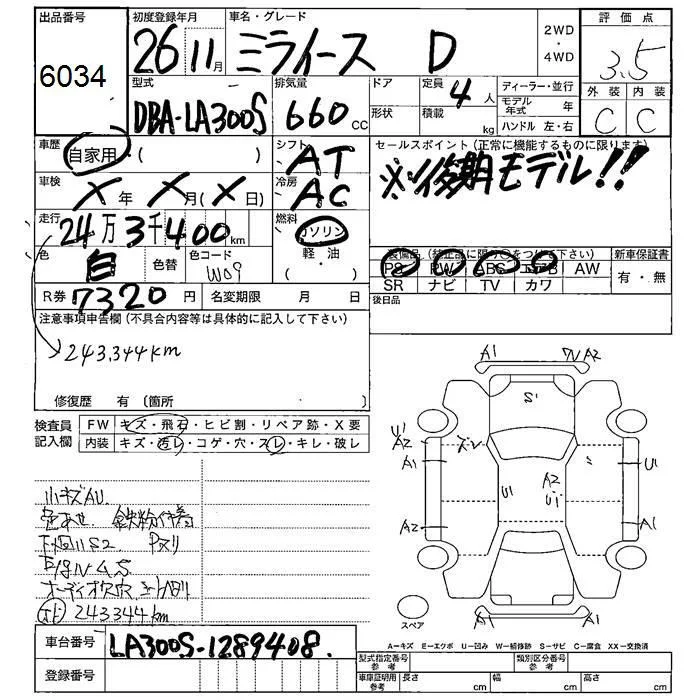 出品番号 6034
初度登録年月 26 11月
車名・グレード ミライース D
2WD・4WD
評価点 3.5
外装 内装
C C
型式 DBA-LA300S
排気量 660 cc
ドア
形状
定員 4人
積載 kg
ディーラー・並行
モデル年式 年
ハンドル 左・右
車歴 自家用・( )
シフト AT
セールスポイント(正常に機能するものに限ります)
※後期モデル!!
車検 X年 X月(X日)
冷房 AC
走行 24万3千400km
燃料 ガソリン 軽・油
色 白 色替 色コード W09
装備品 (禁止記に限り○をつけて下さい)
PS PW ABS エアB AW
SR ナビ TV カワ
新車保証書
有・無
R券 7320円 名変期限 月 日
後日品
注意事項申告欄(不具合内容等は具体的に記入して下さい)
243,344km
修復歴 有 (箇所 )
検査員記入欄
FW キズ・飛石・ヒビ割・リペア跡・X要
内装 キズ・汚レ・コゲ・穴・スレ・キレ・破レ
小キズAU
色あせ 鉄粉付着
下廻りS2 Pスリ
オーディオ穴
243344km
A1 A2
S1
U1
A2 A1 A2
U1 A2 U1
U1 A1
A1 A1
スペア
A=キズ E=エクボ U=凹み W=補修跡 S=サビ C=腐食 XX=交換済
車台番号 LA300S-1289408.
登録番号
型式指定番号 参考
類別区分番号 参考
車庫証明用 参考 長さ cm 幅 cm 高さ cm